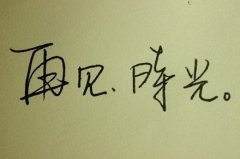 再见、时光。